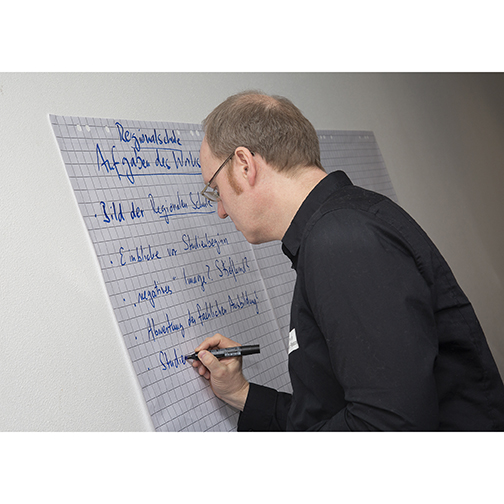 Regionalschule
Aufgaben des
· Bild der Regionalen Schule
· Einblicke vor Studienbeginn
· "negatives" Image?
· Abwertung der fachlichen Ausbildung?
· Studie